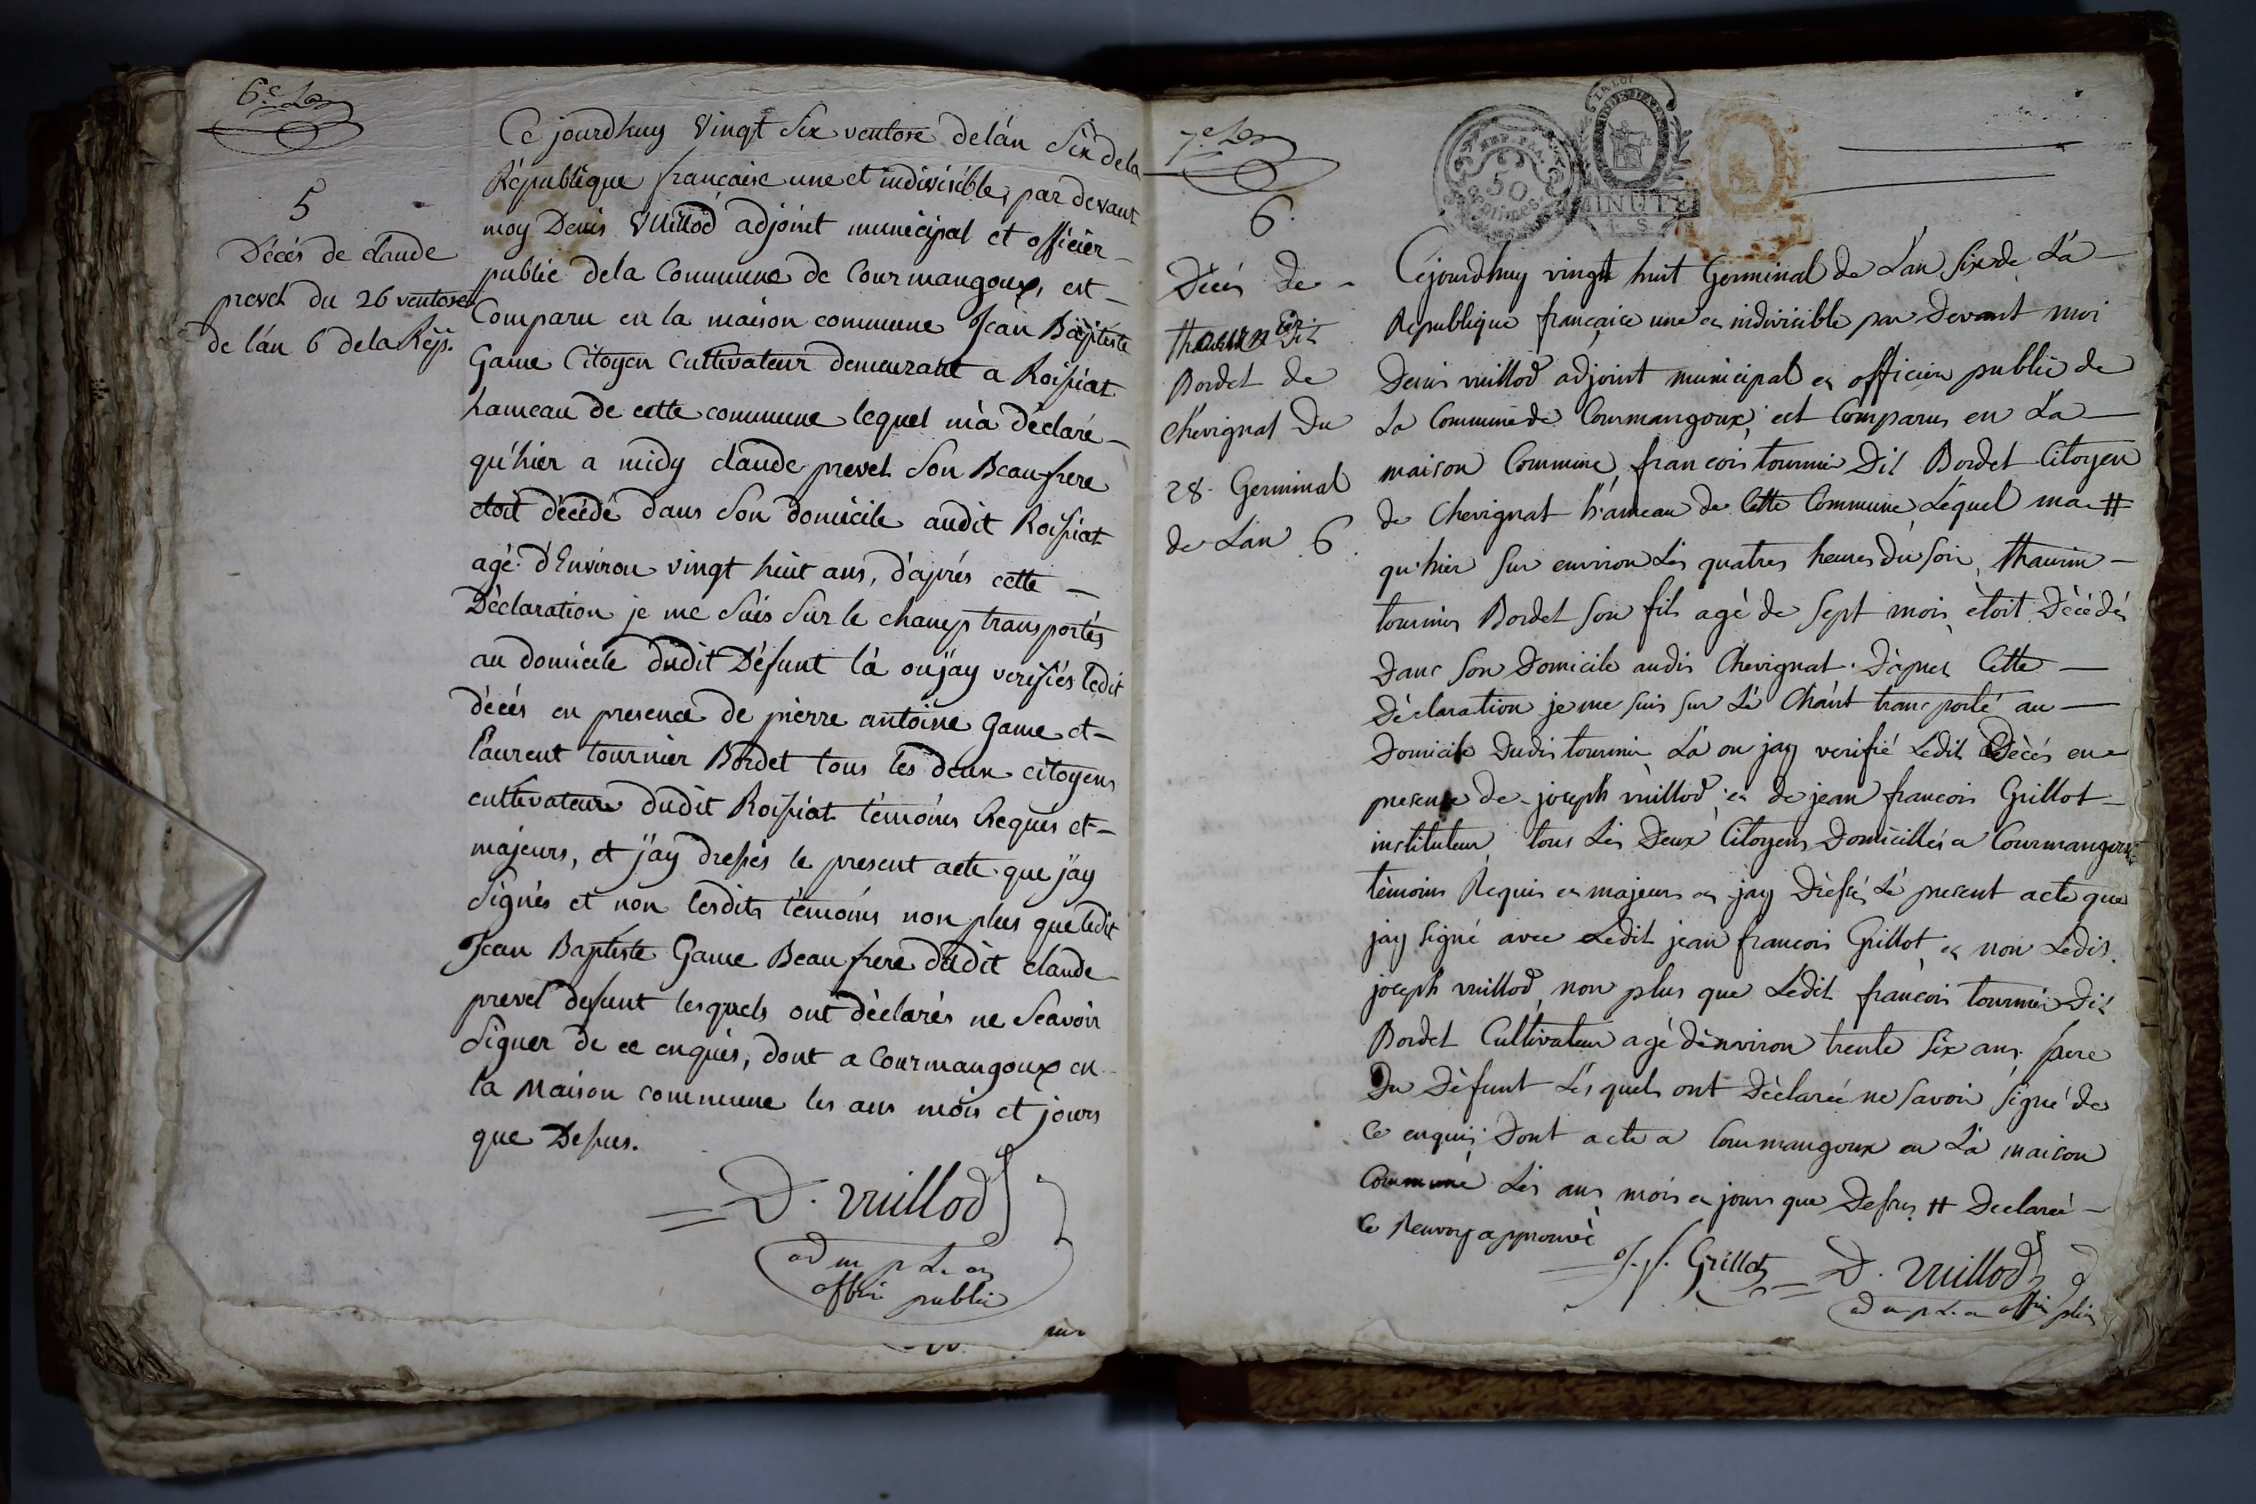 6e
5
Décés de claude
prevel du 26 ventose
de l'án 6 de la Rép.
Ce jourdhuy Vingt Six ventose de l'án Six de la
République française une et indivisible, par devant
moy Denis Vuillod adjoint municipal et officier
public de la Commune de Courmangoux, est
Comparu en la maison commune Jean Baptiste
Game Citoyen Cultivateur demeurant a Roissiat
hameau de cette commune lequel m'à déclaré
qu'hier a midy claude prevel Son Beaufrere
etoit décédé dans Son domicile audit Roissiat
agé d'Environ vingt huit ans, d'aprés cette
Déclaration je me Suis Sur le champ transportés
au domicile dudit Défunt là ou j'ay verifiés ledit
décés en presence de pierre antoine Game et
Laurent tournier Bordet tous les deux citoyens
cultivateurs dudit Roissiat témoins Requis et
majeurs, et j'ay dressés le present acte que j'ay
Signés et non lesdits témoins non plus que ledit
Jean Baptiste Game Beaufrere dudit claude
prevel defunt lesquels ont déclarés ne Scavoir
Signer de ce enquis, dont a Courmangoux en
la Maison commune les ans mois et jours
que Dessus.
D. Vuillod
ad m p
public
7e
6.
Décés de
thaurin dit
Bordet de
Chevignat Du
28 Germinal
de Lan 6
REP. FRA.
50
centimes
LA LOI
MINUTE
Cejourdhuy vingt huit Germinal de L'an Six de La
République française une et indivisible par Devant moi
Denis vuillod adjoint municipal et officier public de
La Commune de Courmangoux, est Comparus en La
maison Commune, francois tournier Dit Bordet Citoyen
de Chevignat hameau de Cette Commune Lequel ma #
qu'hier Sur environ Les quatres heures du Soir, thaurin
tournier Bordet Son fils agé de Sept mois étoit Décédés
Dans Son Domicile audit Chevignat. D'aprés Cette
Déclaration je me suis sur Le Chant transporté au
Domicile Dudit tournier La ou jay verifié Ledit Décés en
presence de joseph vuillod et de jean francois Grillot
instituteur, tous Les Deux Citoyens Domicillés a Courmangoux
témoins Requis et majeurs et jay Dressé Le present acte que
jay Signé avec Ledit jean francois Grillot et non Ledit
joseph vuillod, non plus que Ledit francois tournier Dit
Bordet Cultivateur agé d'environ trente Six ans pere
Du Défunt Lesquels ont Déclarée ne Savoir Signé de
Ce enquis Dont acte a Courmangoux en La maison
Commune Les ans mois et jours que Dessus # Declareé
Ce Renvoy approuvé
J. f. Grillot
D. Vuillod